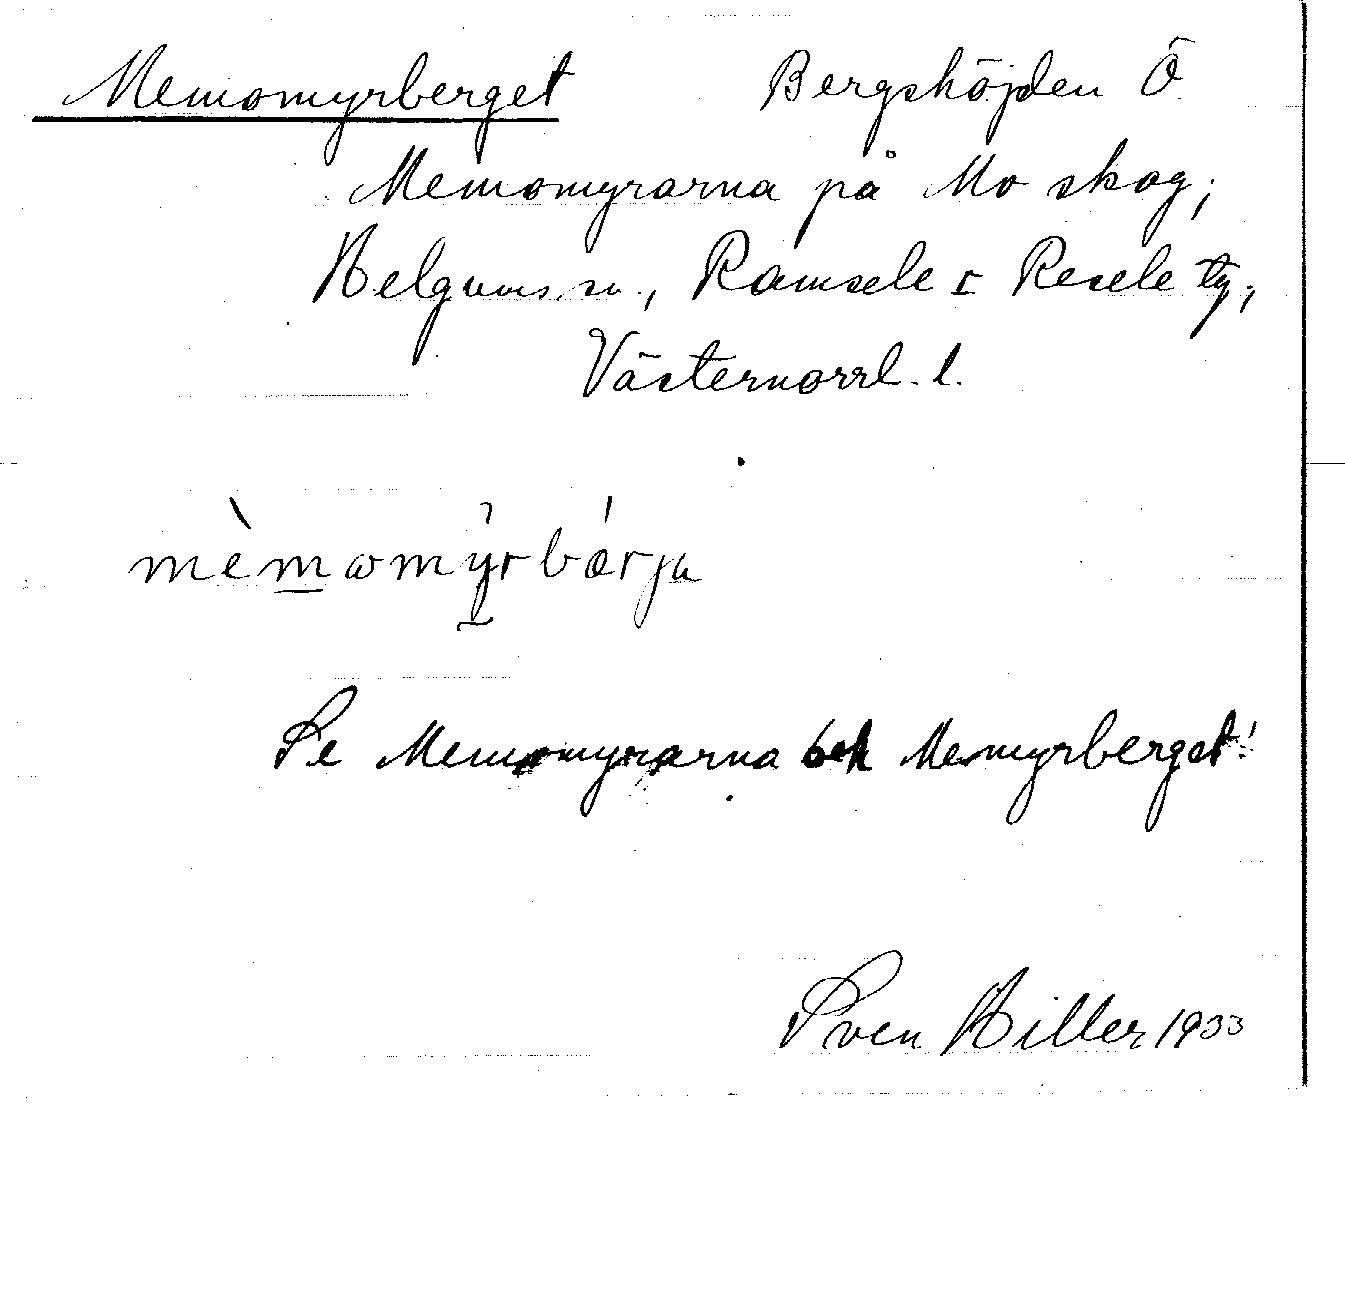 Memomyrberget Bergshöjden Ö
Memomyrarna på Mo skog;
Helgums sn., Ramsele o Resele tg;
Västernorrl. l.
mèmomýrbárja
Se Memomyrarna och Memyrberget!
Sven Hiller 1933